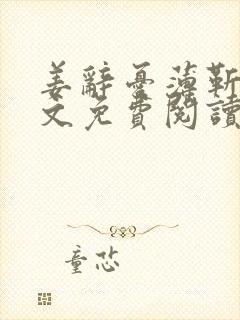 姜辭憂薄靳
文免費閱讀
童芯